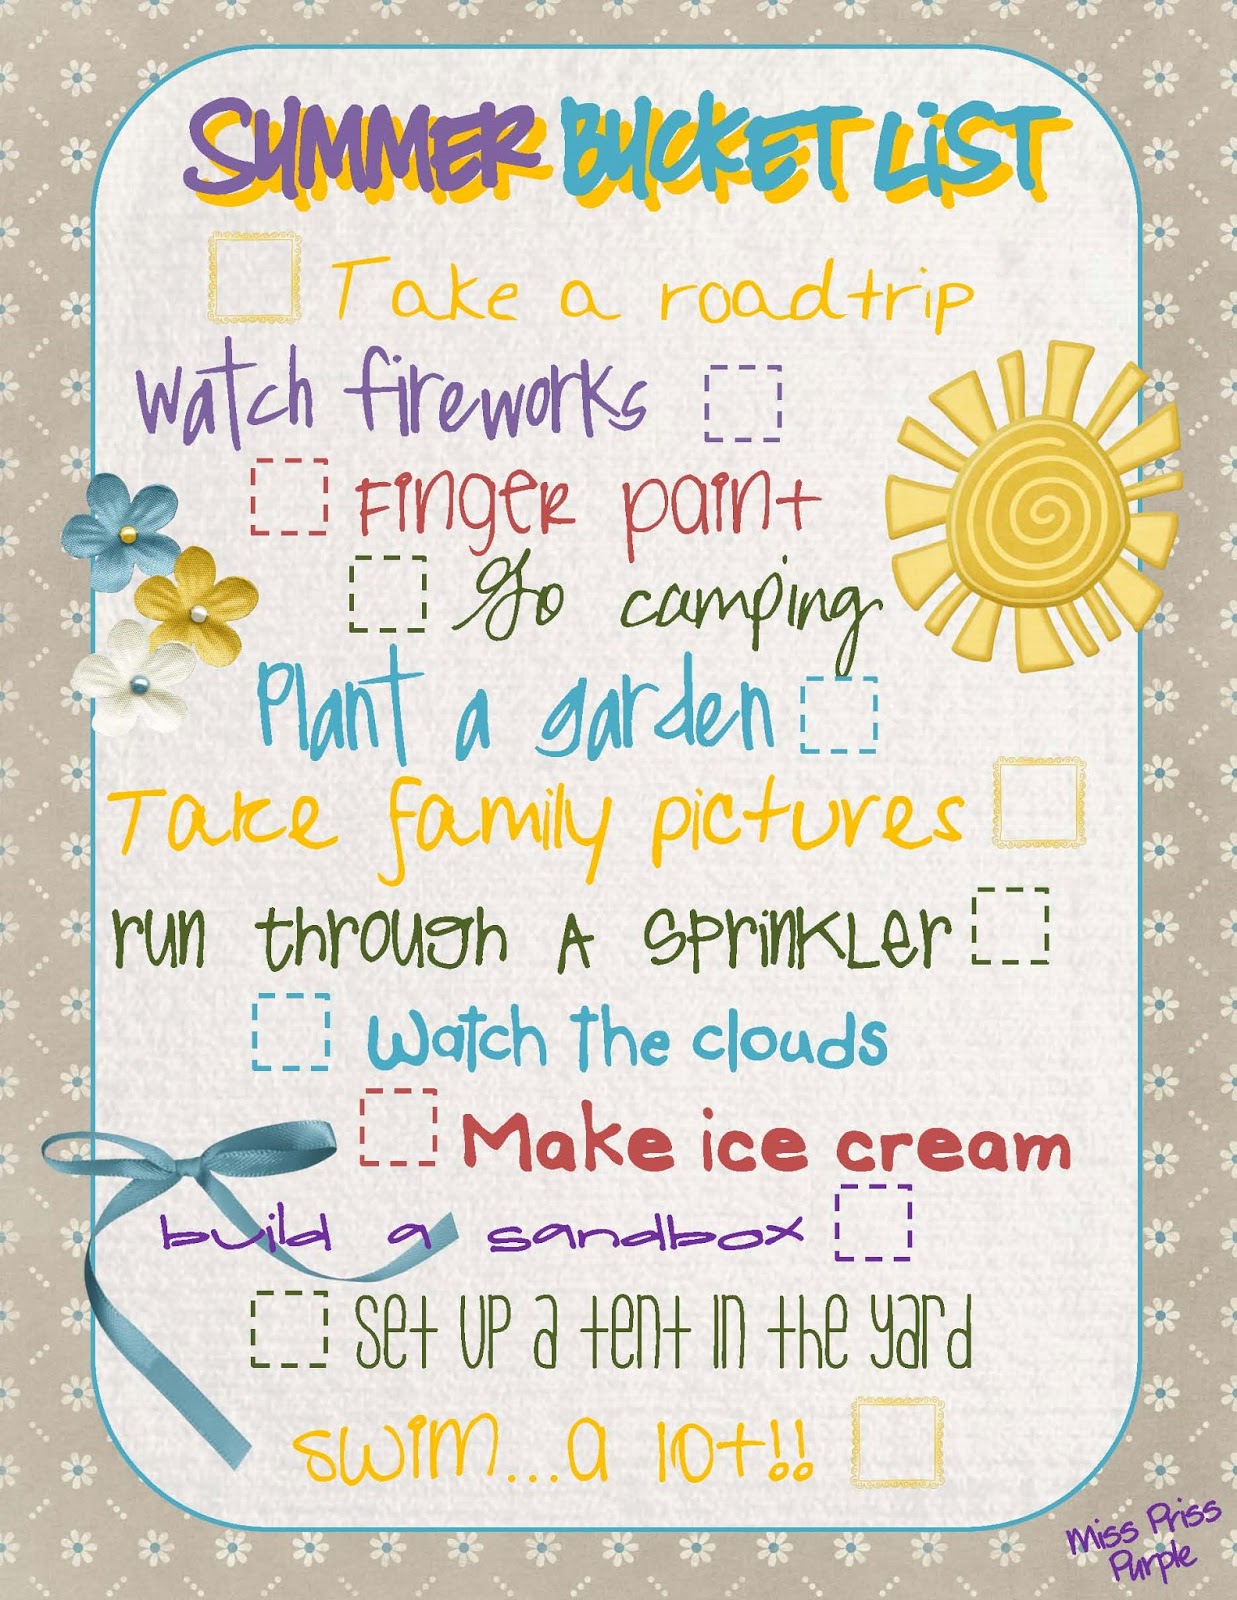 SUMMER BUCKET LiST
Take a roadtrip
Watch fireworks
Finger paint
Go camping
Plant a garden
Take family pictures
run through A sprinkler
Watch the clouds
Make ice cream
build a sandbox
Set up a tent in the yard
swim...a lot!!
Miss Priss
Purple